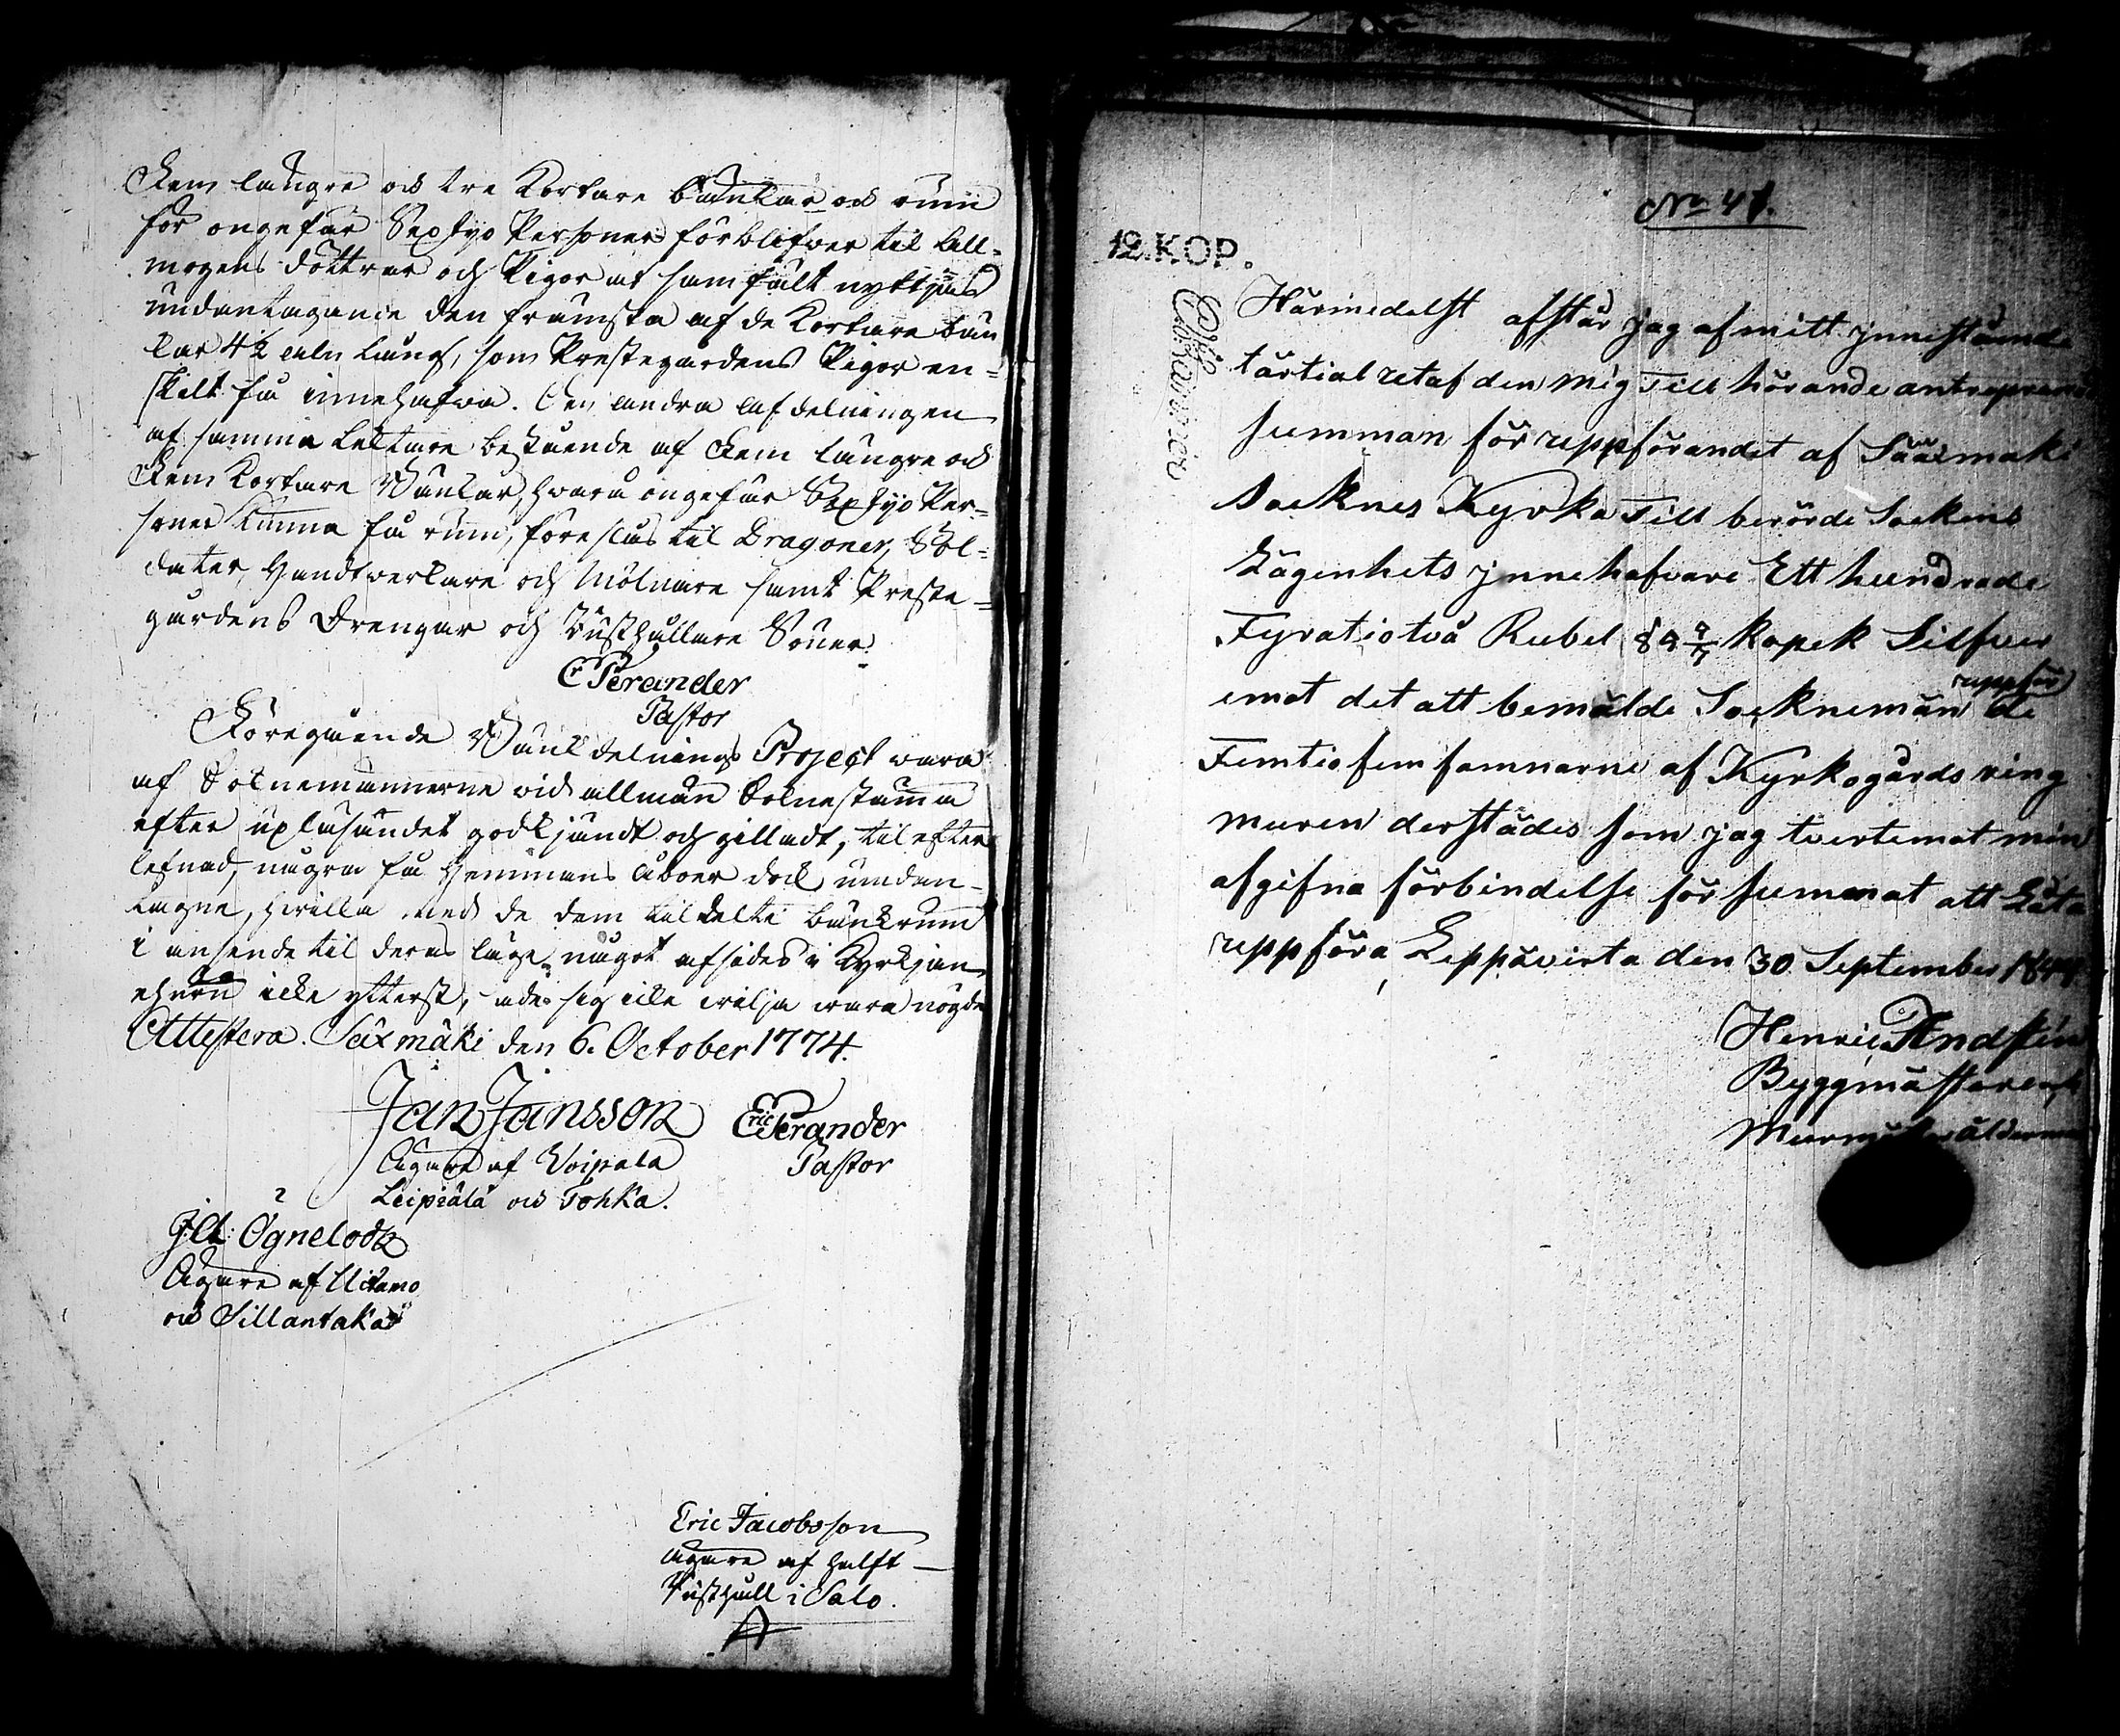 Fem längre och tre Kortare bänkar och rum
för ongefär Sextjo Personer förblifver til All=
mogens döttrar och Pigor at samfält nyttjas
undantagande den främsta af de Kortare bän
kar 4½ aln lång, som Prestegårdens Pigor en=
skilt få innehafva. Den andra afdelningen
af samma Lecktare bestående af Fem längre och
Fem Kortare Bänkar, hvara ongefär Sextjo Per=
soner kunna få rum, föreslås til Dragoner, Sol=
dater, Handtverkare och Mölnare samt Preste=
gårdens Drengar och Rusthållare Söner.
E Perander
Pastor
Föregående Bänkdelnings Project vara
af Soknemännerne vid allmän Soknestämma
efter upläsandet godkjändt och gilladt, til efter
lefnad, några få Hemmans Åboer dock undan-
tagne, hvilka med de dem tildelte bänkrum
i anseende til deras läge något afsides i Kyrkjan
ehuru icke ytterst, sig icke vilja vara nögde
Attestera. Säxmäki den 6. October 1774.
Jan Jansson Eric Perander
Ägare af Voipala Pastor
Leipiälä och Tohka.
Ögnelodh
Ägare af Uitamo
och Sillantaka
Eric Jacobsson
Ägare af halft
Rusthåll i Salo.
No 41.
12.KOP.
Härmedelst afstår jag af mitt jnnestående
tärtial utaf den mig Till hörande antreprenad
summan för uppförandet af Sääxmäki
Socknes Kyrka Till berörde Sockens
Lägenhets jnnehafvare Ett hundrade
Fyratiotvå Rubel 89 kopek Silfver
emot det att bemälde Sockneman uppför de
Femtiofem famnarne af Kyrkogårds ring
muren derstädes som jag tvertemot min
afgifna förbindelse försummat att Låta
uppföra, Leppävirta den 30 September
Henric
Byggmästare och
ålderman